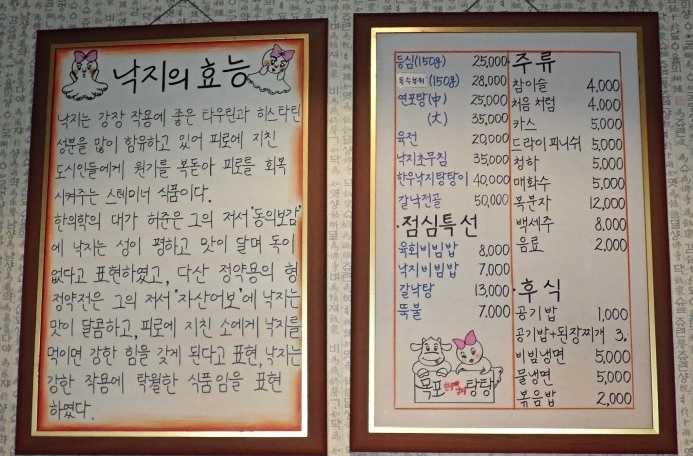 낙지의 효능
낙지는 강장 작용에 좋은 타우린과 히스타틴
성분을 많이 함유하고 있어 피로에 지친
도시인들에게 원기를 복돋아 피로를 회복
시켜주는 스테미너 식품이다.
한의학의 대가 허준은 그의 저서 '동의보감'
에 낙지는 성이 평하고 맛이 달며 독이
없다고 표현하였고, 다산 정약용의 형
정약전은 그의 저서 '자산어보'에 낙지는
맛이 달콤하고, 피로에 지친 소에게 낙지를
먹이면 강한 힘을 갖게 된다고 표현, 낙지는
강한 작용에 탁월한 식품임을 표현
하였다.
등심(150g) 25,000
특수부위(150g) 28,000
연포탕(中) 25,000
(大) 35,000
육전 20,000
낙지초무침 35,000
한우낙지탕탕이 40,000
갈낙전골 50,000
·점심특선
육회비빔밥 8,000
낙지비빔밥 7,000
갈낙탕 13,000
뚝불 7,000
목포 탕탕
·주류
참이슬 4,000
처음처럼 4,000
카스 5,000
드라이피니쉬 5,000
청하 5,000
매화수 5,000
복분자 12,000
백세주 8,000
음료 2,000
·후식
공기밥 1,000
공기밥+된장찌개 3,
비빔냉면 5,000
물냉면 5,000
볶음밥 2,000